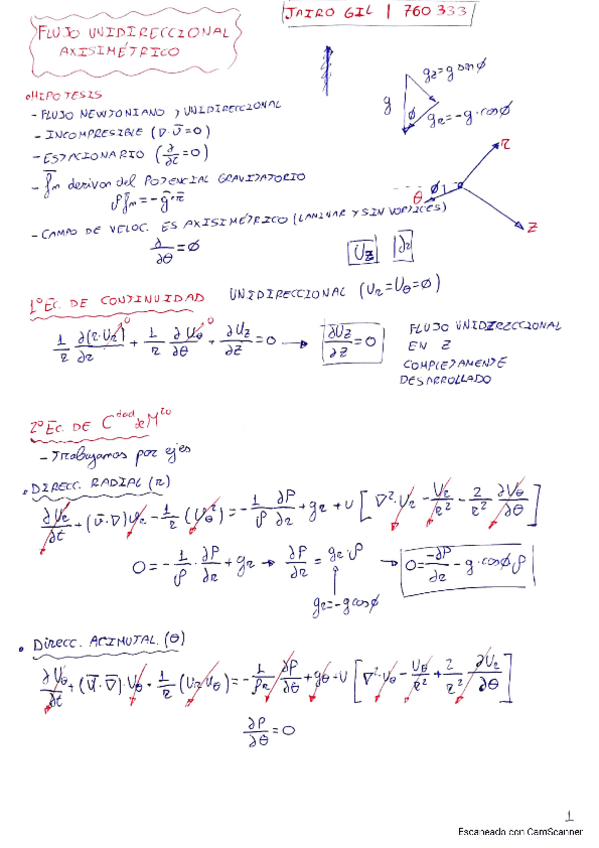 FLUJO UNIDIRECCIONAL
AXISIMÉTRICO
JAIRO GIL | 760 333
HIPOTESIS
- FLUJO NEWTONIANO y UNIDIRECCIONAL
- INCOMPRESIBLE (∇·v̄=0)
- ESTACIONARIO (∂/∂t=0)
- f̄m derivan del POTENCIAL GRAVITATORIO
ρf̄m=-ḡ·r̄
- CAMPO DE VELOC. ES AXISIMÉTRICO (LAMINAR Y SIN VORTICES)
∂/∂θ=ø
gz=g senø
g
ø
gr=-g·cosø
r
θ
ø
z
Uz
∂r
1º EC. DE CONTINUIDAD UNIDIRECCIONAL (Ur=Uθ=ø)
1/r ∂(r·Ur)/∂r + 1/r ∂Uθ/∂θ + ∂Uz/∂z=0 → ∂Uz/∂z=0
FLUJO UNIDIRECCIONAL
EN Z
COMPLETAMENTE
DESARROLLADO
2º EC. DE Cdad de Mto
- Trabajamos por ejes
• DIRECC. RADIAL (r)
∂Ur/∂t + (v̄·∇)Ur - 1/r (Uθ²) = -1/ρ ∂P/∂r + gr + ν [∇²·Ur - Ur/r² - 2/r² ∂Uθ/∂θ]
0=-1/ρ · ∂P/∂r + gr → ∂P/∂r = gr·ρ → 0=-∂P/∂r - g·cosø ρ
gr=-g cosø
• DIRECC. ACIMUTAL (θ)
∂Uθ/∂t + (v̄·∇)·Uθ + 1/r (Ur Uθ) = -1/ρr ∂P/∂θ + gθ + ν [∇²·Uθ - Uθ/r² + 2/r² ∂Ur/∂θ]
∂P/∂θ=0
1
Escaneado con CamScanner